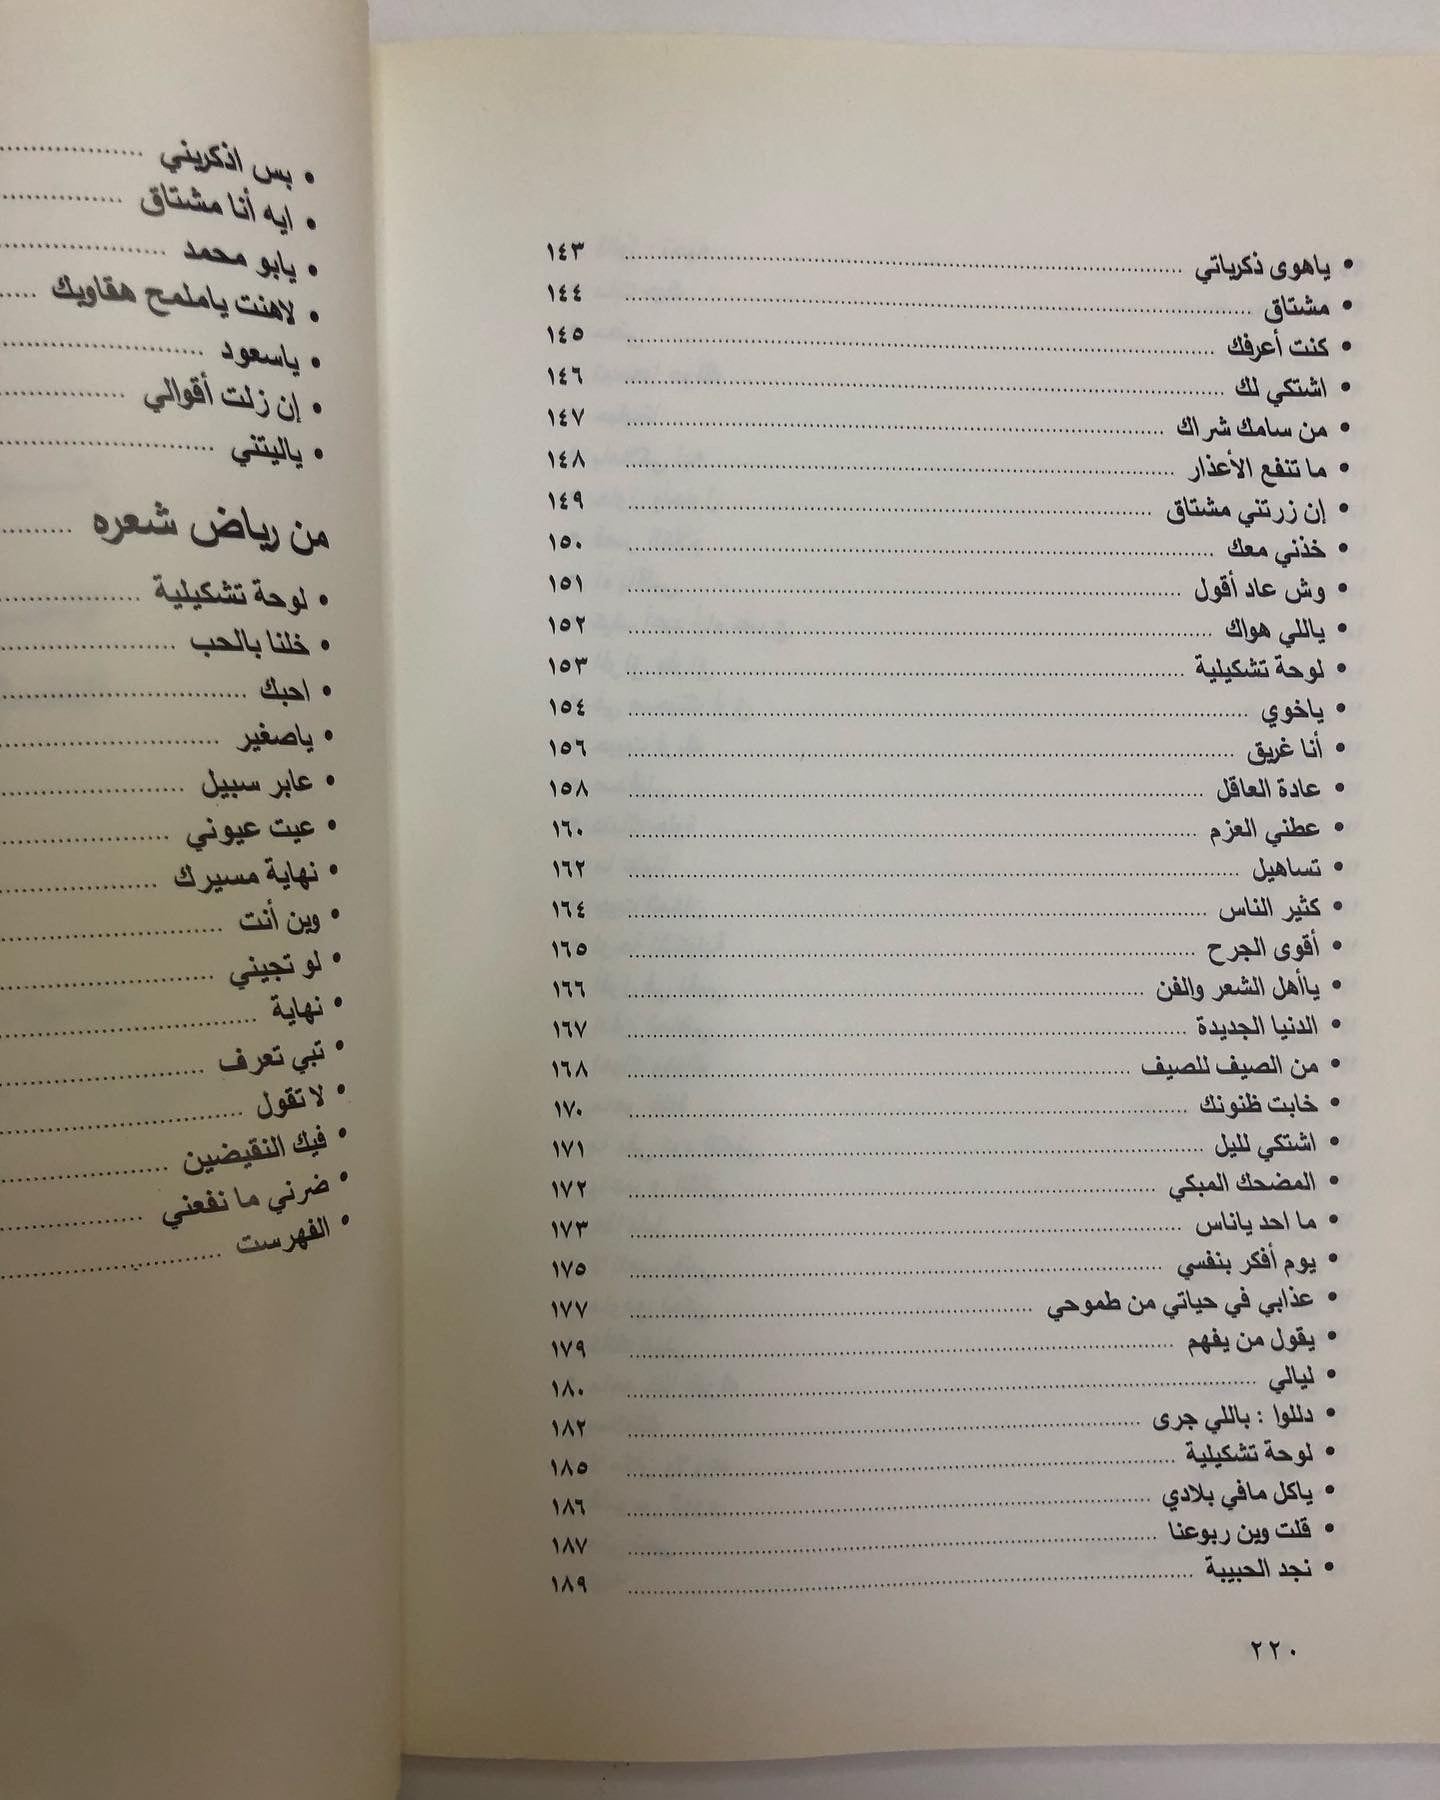 • ياهوى ذكرياتي ........ ١٤٣
• مشتاق ........ ١٤٤
• كنت أعرفك ........ ١٤٥
• اشتكي لك ........ ١٤٦
• من سامك شراك ........ ١٤٧
• ما تنفع الأعذار ........ ١٤٨
• إن زرتني مشتاق ........ ١٤٩
• خذني معك ........ ١٥٠
• وش عاد أقول ........ ١٥١
• ياللي هواك ........ ١٥٢
• لوحة تشكيلية ........ ١٥٣
• ياخوي ........ ١٥٤
• أنا غريق ........ ١٥٦
• عادة العاقل ........ ١٥٨
• عطني العزم ........ ١٦٠
• تساهيل ........ ١٦٢
• كثير الناس ........ ١٦٤
• أقوى الجرح ........ ١٦٥
• ياأهل الشعر والفن ........ ١٦٦
• الدنيا الجديدة ........ ١٦٧
• من الصيف للصيف ........ ١٦٨
• خابت ظنونك ........ ١٧٠
• اشتكي لليل ........ ١٧١
• المضحك المبكي ........ ١٧٢
• ما احد ياناس ........ ١٧٣
• يوم أفكر بنفسي ........ ١٧٥
• عذابي في حياتي من طموحي ........ ١٧٧
• يقول من يفهم ........ ١٧٩
• ليالي ........ ١٨٠
• دللوا : باللي جرى ........ ١٨٢
• لوحة تشكيلية ........ ١٨٥
• ياكل مافي بلادي ........ ١٨٦
• قلت وين ربوعنا ........ ١٨٧
• نجد الحبيبة ........ ١٨٩
٢٢٠
• بس اذكريني ........
• ايه أنا مشتاق ........
• يابو محمد ........
• لاهنت ياملمح هقاويك ........
• ياسعود ........
• إن زلت أقوالي ........
• ياليتني ........
من رياض شعره ........
• لوحة تشكيلية ........
• خلنا بالحب ........
• احبك ........
• ياصغير ........
• عابر سبيل ........
• عيت عيوني ........
• نهاية مسيرك ........
• وين أنت ........
• لو تجيني ........
• نهاية ........
• تبي تعرف ........
• لا تقول ........
• فيك النقيضين ........
• ضرني ما نفعني ........
• الفهرست ........